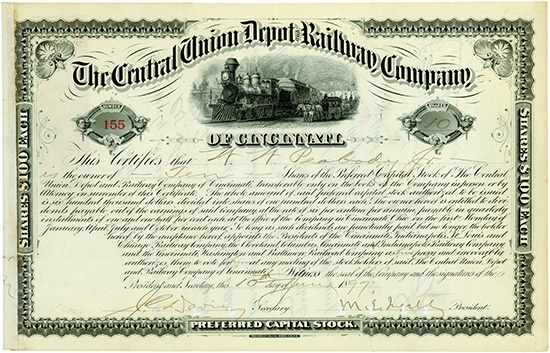 The Central Union Depot and Railway Company
OF CINCINNATI.
NUMBER
155
SHARES
10
SHARES $100 EACH
SHARES $100 EACH
This Certifies that W. W. Peabody Jr.
is the owner of Ten Shares of the Preferred Capital Stock of The Central
Union Depot and Railway Company of Cincinnati, transferable only on the books of the Company in person or by
Attorney on surrender of this Certificate. The whole amount of said preferred capital stock authorized to be issued
is six hundred thousand dollars divided into shares of one hundred dollars each. The owner hereof is entitled to divi-
dends payable out of the earnings of said Company at the rate of six per centum per annum, payable in quarterly
installments of one and one half per cent each at the office of the Company in Cincinnati Ohio on the first Monday of
January, April, July and October in each year. So long as such dividends are punctually paid the
hereof the President of the Cincinnati, Indianapolis, St. Louis and
Chicago Railway Company, the Cleveland, Columbus, Cincinnati and Indianapolis Railway Company
and the Cincinnati, Washington and Baltimore Railroad Company
authorizes them to vote for at any meeting of the stockholders of said The Central Union Depot
and Railway Company of Cincinnati. Witness the seal of the company and the signatures of the
President and Secretary, this day of June 1897.
Secretary.
M. E. Ingalls President.
PREFERRED CAPITAL STOCK.